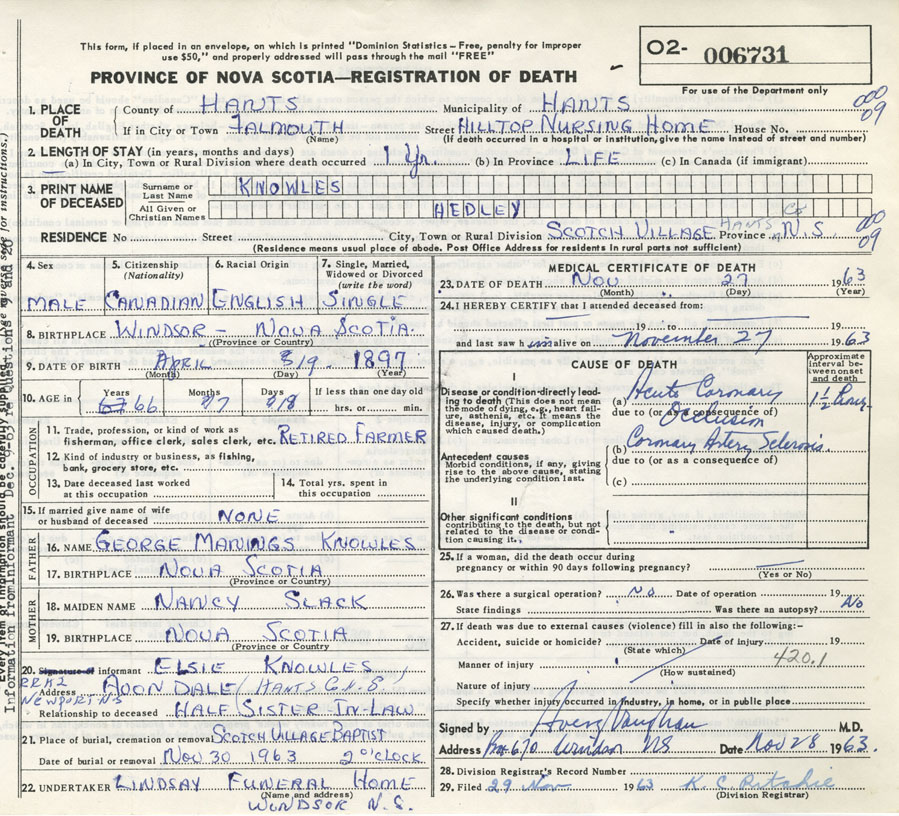 This form, if placed in an envelope, on which is printed "Dominion Statistics - Free, penalty for improper
use $50," and properly addressed will pass through the mail "FREE"
O2- 006731
PROVINCE OF NOVA SCOTIA—REGISTRATION OF DEATH
For use of the Department only
1. PLACE OF DEATH County of HANTS Municipality of HANTS 000 09
If in City or Town FALMOUTH (Name) Street HILLTOP NURSING HOME House No.
(If death occurred in a hospital or institution, give the name instead of street and number)
2. LENGTH OF STAY (in years, months and days)
(a) In City, Town or Rural Division where death occurred 1 Yr. (b) In Province LIFE (c) In Canada (if immigrant)
3. PRINT NAME OF DECEASED Surname or Last Name KNOWLES
All Given or Christian Names HEDLEY
RESIDENCE No Street City, Town or Rural Division SCOTCH VILLAGE HANTS Co Province N.S 000 09
(Residence means usual place of abode. Post Office Address for residents in rural parts not sufficient)
4. Sex MALE
5. Citizenship (Nationality) CANADIAN
6. Racial Origin ENGLISH
7. Single, Married, Widowed or Divorced (write the word) SINGLE
8. BIRTHPLACE WINDSOR - NOVA SCOTIA.
(Province or Country)
9. DATE OF BIRTH APRIL 19 1897
(Month) (Day) (Year)
10. AGE in Years 66 Months 7 Days 8 If less than one day old
hrs. or min.
OCCUPATION
11. Trade, profession, or kind of work as
fisherman, office clerk, sales clerk, etc. RETIRED FARMER
12. Kind of industry or business, as fishing,
bank, grocery store, etc.
13. Date deceased last worked
at this occupation
14. Total yrs. spent in
this occupation
15. If married give name of wife
or husband of deceased NONE
FATHER
16. NAME GEORGE MANINGS KNOWLES
17. BIRTHPLACE NOVA SCOTIA
(Province or Country)
MOTHER
18. MAIDEN NAME NANCY SLACK
19. BIRTHPLACE NOVA SCOTIA
(Province or Country)
20. Signature of informant ELSIE KNOWLES
Address AVON DALE / HANTS C. N.S.
RR#2
NEWPORT N.S
Relationship to deceased HALF SISTER IN-LAW
21. Place of burial, cremation or removal SCOTCH VILLAGE BAPTIST
Date of burial or removal NOV 30 1963 2 O'CLOCK
22. UNDERTAKER LINDSAY FUNERAL HOME
(Name and address)
WINDSOR N.S.
MEDICAL CERTIFICATE OF DEATH
23. DATE OF DEATH NOV 27 1963
(Month) (Day) (Year)
24. I HEREBY CERTIFY that I attended deceased from:
19 to 19
and last saw him alive on November 27 1963
CAUSE OF DEATH
Approximate interval between onset and death
I
Disease or condition directly leading to death (This does not mean
the mode of dying, e.g., heart failure, asthenia, etc. It means the
disease, injury, or complication
which caused death.)
(a) Acute Coronary Occlusion 1½ hour
due to (or as a consequence of)
(b) Coronary Artery Sclerosis.
due to (or as a consequence of)
(c)
Antecedent causes
Morbid conditions, if any, giving
rise to the above cause, stating
the underlying condition last.
II
Other significant conditions
contributing to the death, but not
related to the disease or condition causing it.
25. If a woman, did the death occur during
pregnancy or within 90 days following pregnancy?
(Yes or No)
26. Was there a surgical operation? No Date of operation 19
State findings Was there an autopsy? No
27. If death was due to external causes (violence) fill in also the following:-
Accident, suicide or homicide? Date of injury 19
(State which)
420.1
Manner of injury
(How sustained)
Nature of injury
Specify whether injury occurred in industry, in home, or in public place
Signed by Avery Vaughan M.D.
Address Box 670 Windsor NS Date Nov 28 1963.
28. Division Registrar's Record Number
29. Filed 29 Nov 1963 K. C. Ritchie
(Division Registrar)